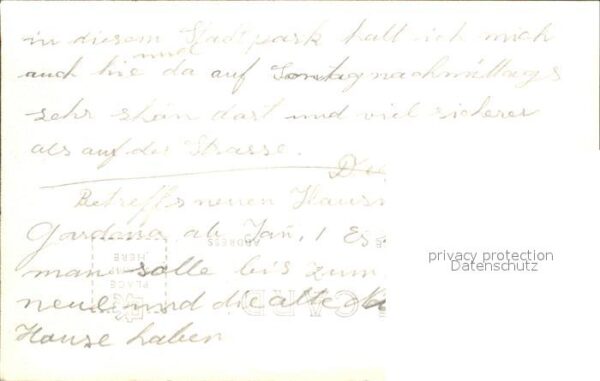 in diesem Stadtpark halt ich mich
und
auch hie da auf Sontag nachmittags
sehr shön dort und viel sicherer
als auf der Strasse.
Betreffs neuen
Gardena ab Jan, 1 Es
man solle bis zum
neue und die alte
Hause haben
privacy protection
Datenschutz
ADDRESS
PLACE
HERE
CARD